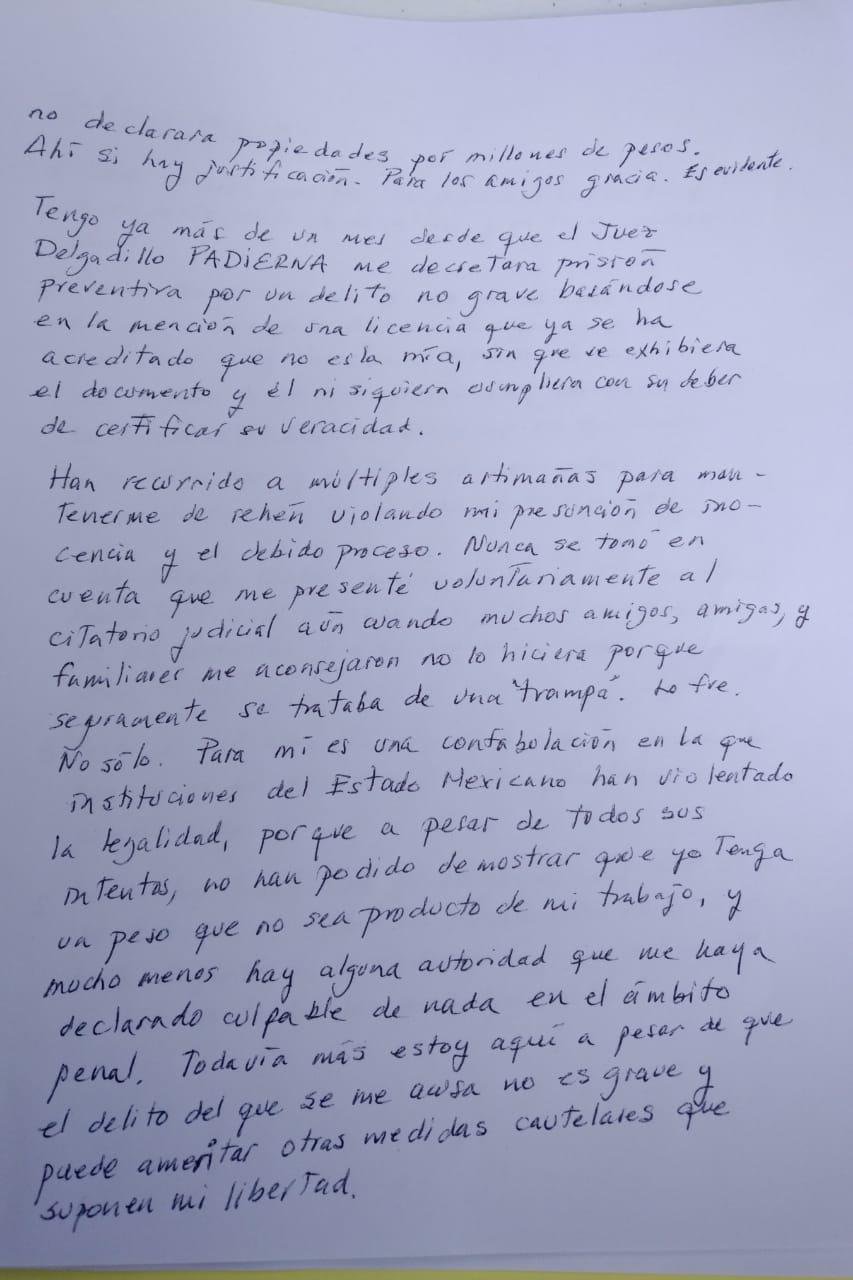 no declarara propiedades por millones de pesos.
Ahí si hay justificación. Para los amigos gracia. Es evidente.
Tengo ya más de un mes desde que el Juez
Delgadillo PADIERNA me decretara prisión
preventiva por un delito no grave basándose
en la mención de una licencia que ya se ha
acreditado que no es la mía, sin que se exhibiera
el documento y él ni siquiera cumpliera con su deber
de certificar su veracidad.
Han recurrido a múltiples artimañas para man-
tenerme de rehén violando mi presunción de ino-
cencia y el debido proceso. Nunca se tomó en
cuenta que me presenté voluntariamente al
citatorio judicial aún cuando muchos amigos, amigas, y
familiares me aconsejaron no lo hiciera porque
seguramente se trataba de una "trampa". Lo fue.
No sólo. Para mí es una confabulación en la que
instituciones del Estado Mexicano han violentado
la legalidad, porque a pesar de todos sus
intentos, no han podido demostrar que yo tenga
un peso que no sea producto de mi trabajo, y
mucho menos hay alguna autoridad que me haya
declarado culpable de nada en el ámbito
penal. Todavía más estoy aquí a pesar de que
el delito del que se me acusa no es grave y
puede ameritar otras medidas cautelares que
suponen mi libertad.